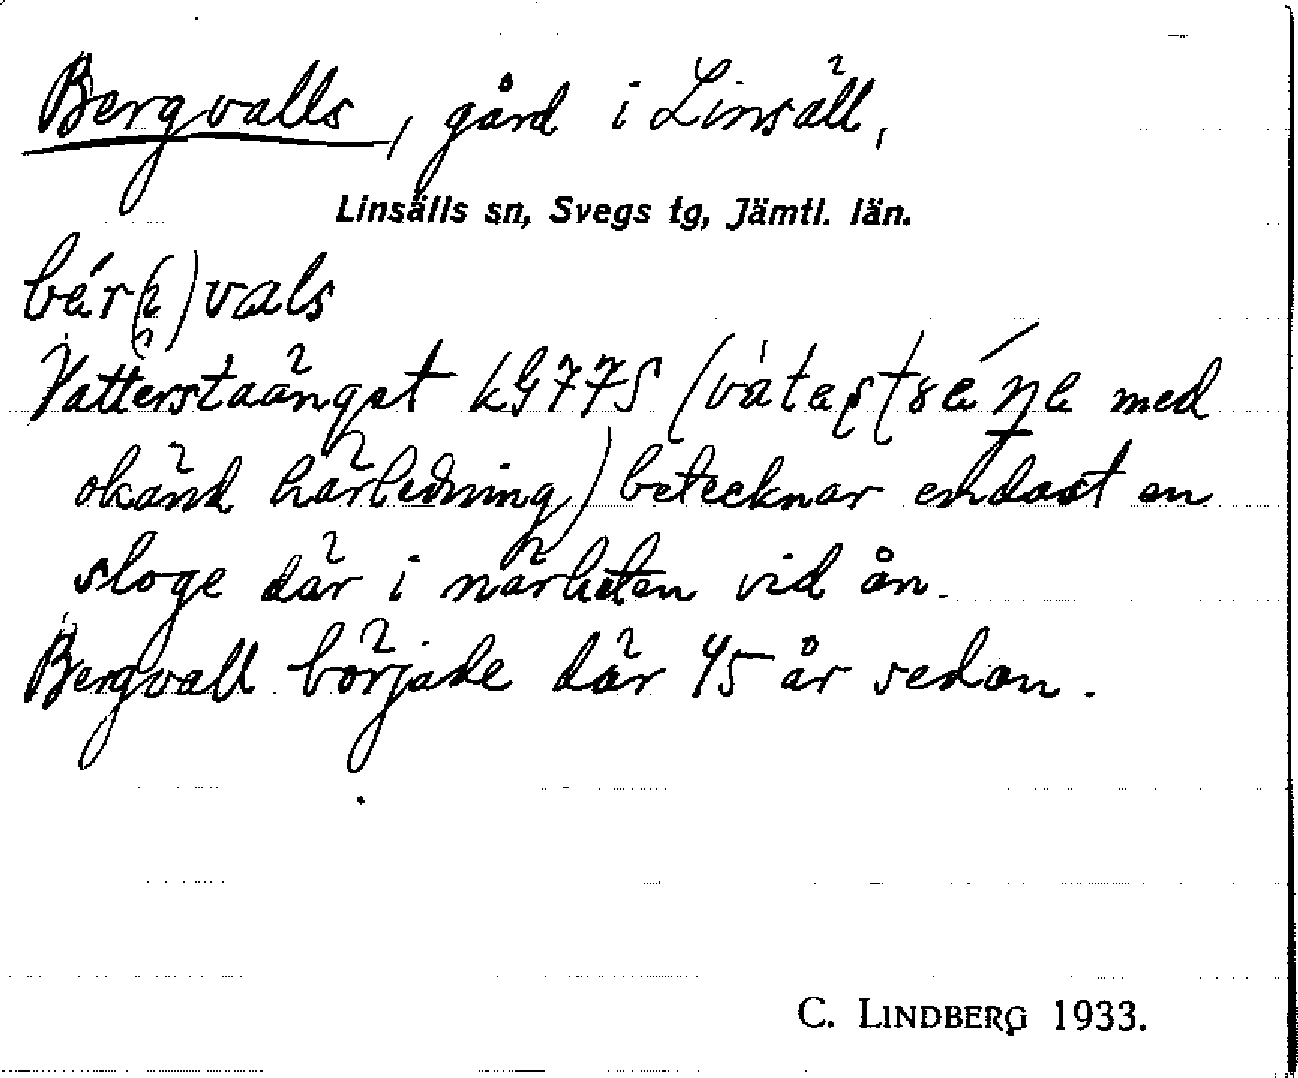 Bergvalls, gård i Linsäll,
Linsälls sn, Svegs tg, Jämtl. län.
bér(j)vals
Vatterstaänget LG77S (vátastséŋe med
okänd härledning) betecknar endast en
sloge där i närheten vid ån.
Bergvall började där 45 år sedan.
C. LINDBERG 1933.